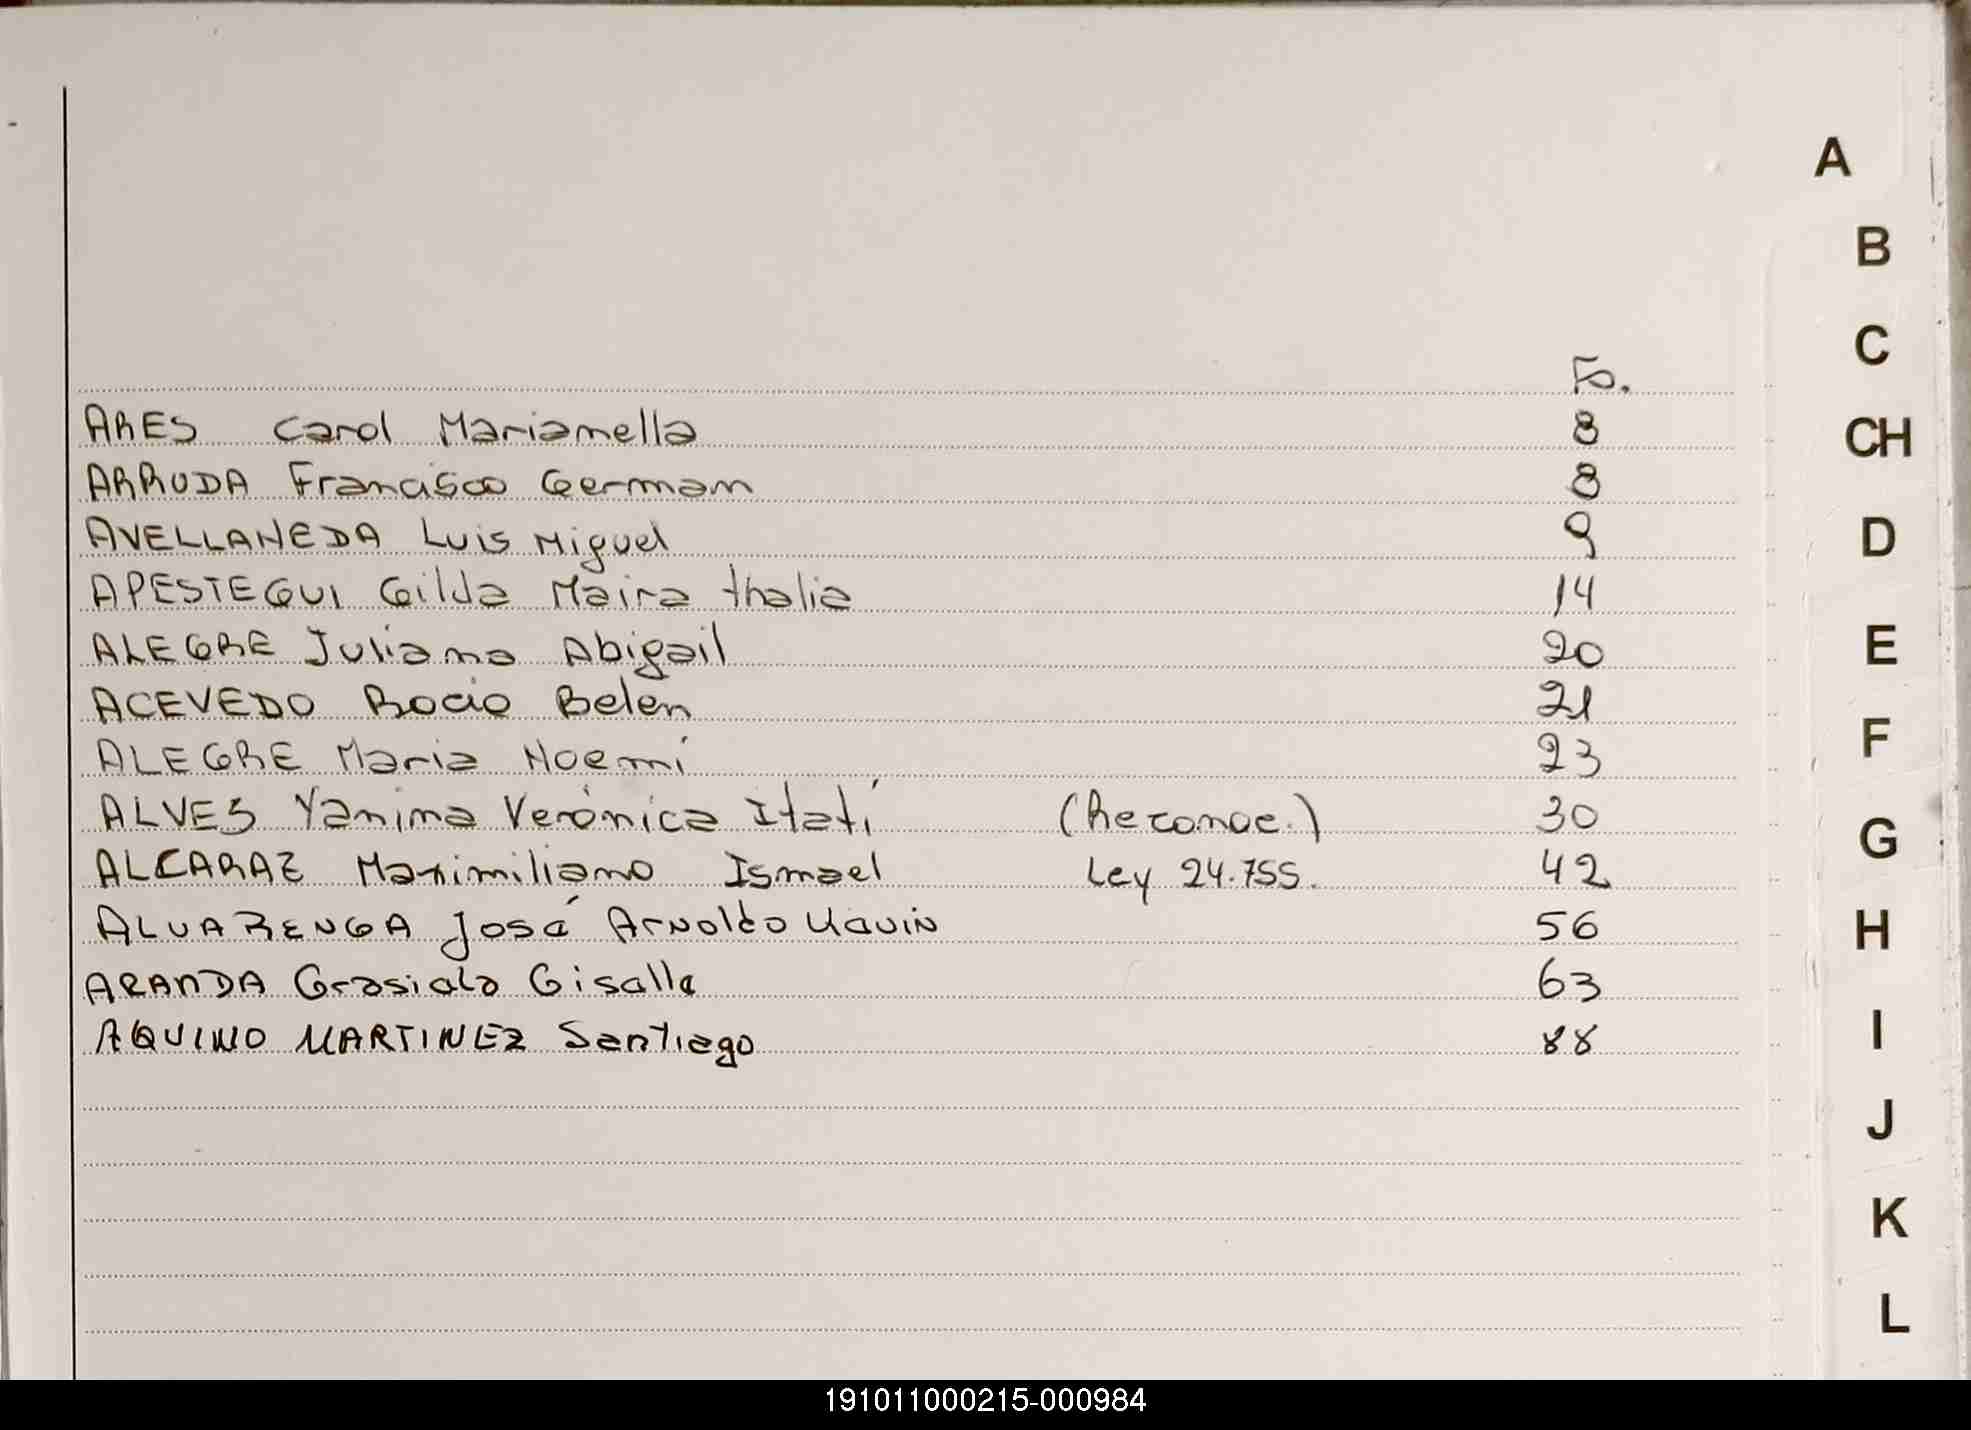 A
B
C
Fo.
ARES Carol Marianella 8
CH
ARRUDA Francisco German 8
AVELLANEDA Luis Miguel 9
D
APESTEGUI Gilda Maira thalia 14
ALEGRE Juliana Abigail 20
E
ACEVEDO Rocio Belen 21
ALEGRE Maria Noemí 23
F
ALVES Yanina Verónica Itatí (Reconoc.) 30
G
ALCARAZ Maximiliano Ismael Ley 24.755. 42
ALVARENGA José Arnoldo 56
H
ARANDA Grasiela Gisella 63
AQUINO MARTINEZ Santiago 88
I
J
K
L
191011000215-000984